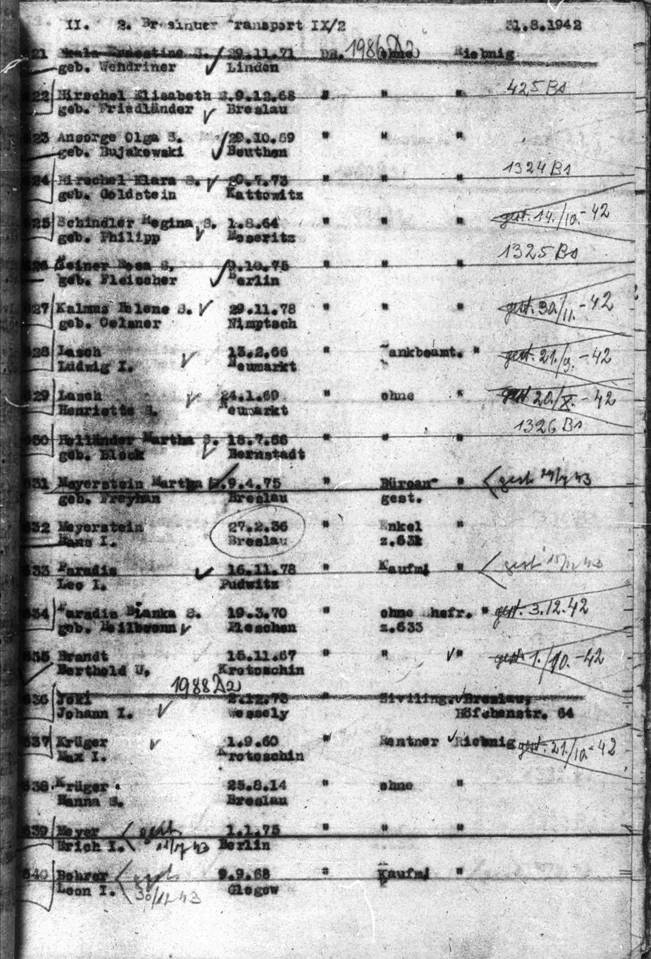 II. 2. Breslauer Transport IX/2 31.8.1942
621 Ernestine S. 29.11.71 DR. 1986 A2 ohne Riebnig
geb. Wendriner Linden
622 Hirschel Elisabeth S. 9.12.68 " " " 425 Bs
geb. Friedländer Breslau
623 Ansorge Olga S. 29.10.69 " " "
geb. Bujakowski Beuthen
624 Hirschel Klara S. 20.7.73 " " " 1324 Bs
geb. Goldstein Kattowitz
625 Schindler Regina S. 1.8.64 " " " gest. 14./10.-42
geb. Philipp Meseritz
626 Rosa S. 9.10.75 " " " 1325 Bs
geb. Fleischer Berlin
627 Kalmus Helene S. 29.11.78 " " " gest. 30/11.-42
geb. Oelsner Nimptsch
628 Lasch 13.2.66 " Bankbeamt. " gest. 21/9.-42
Ludwig I. Neumarkt
629 Lasch 24.1.69 " ohne " gest 20/X.-42
Henriette S. Neumarkt
630 Holländer Martha S. 18.7.66 " " " 1326 Bs
geb. Block Bernstadt
631 Meyerstein Martha S. 9.4.75 " Büroan- " gest
geb. Freyhan Breslau gest.
632 Meyerstein 27.2.36 " Enkel "
Hans I. Breslau z.631
633 Paradis 16.11.78 " Kaufm. " gest
Leo I. Pudwitz
634 Paradis Bianka S. 19.3.70 " ohne Ehefr. " gest. 3.12.42
geb. Heilbronn Pleschen z.633
635 Brandt 15.11.67 " " " gest 1./10.-42
Berthold U. Krotoschin
1988 A2
636 2.12.73 " Ziviling. Breslau,
Johann I. Wessely Höfchenstr. 64
637 Krüger 1.9.60 " Rentner Riebnig gest. 21/10.-42
Max I. Krotoschin
638 Krüger 25.8.14 " ohne "
Hanna S. Breslau
639 Meyer gest 1.1.75 " " "
Erich I. Berlin
640 Bohrer gest 9.9.68 " Kaufm. "
Leon I. Glogow